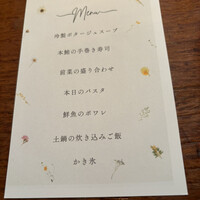 Menu
特製ポタージュスープ
本鮪の手巻き寿司
前菜の盛り合わせ
本日のパスタ
鮮魚のポワレ
土鍋の炊き込みご飯
かき氷